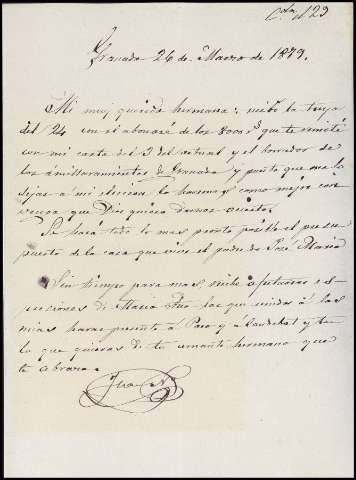 Granada 26 de Marzo de 1879.
Mi muy querida hermana: recibo la tuya
del 24 con el abonaré de los 8000 rs que te remití
con mi carta del 3 del actual y el borrador de
los amillaramientos de Granada y puesto que me lo
dejas a mi eleccion lo haremos como mejor con
venga que Dios quiera darnos acierto.
Se hará todo lo mas pronto posible el presu
puesto de la casa que vive el padre de José Maria
Sin tiempo para mas, recibe afectuosas es
presiones de Maria que las que unidas á las
mias haras presente á Paco y á y tu
lo que quieras de tu amante hermano que
te abraza.
Juan